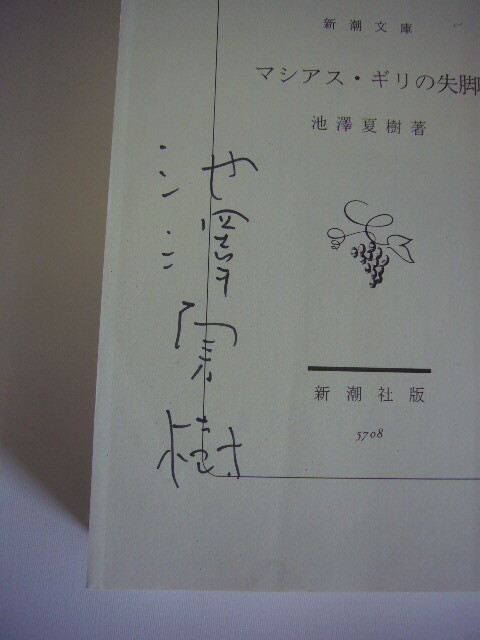 新潮文庫
マシアス・ギリの失脚
池澤夏樹著
池澤夏樹
新潮社版
5708